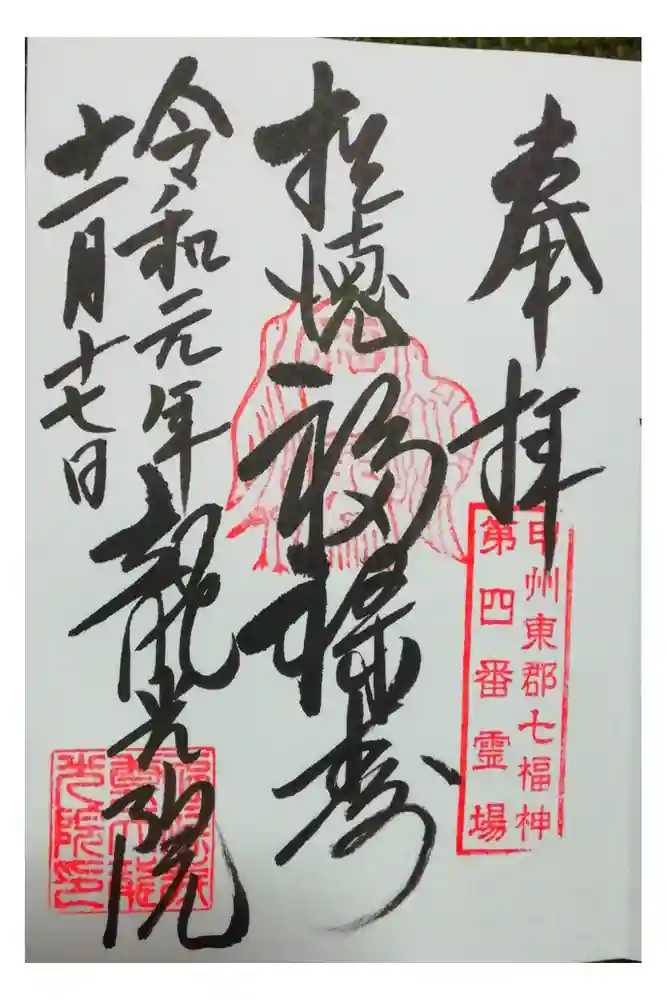 奉拝
甲州東郡七福神
第四番霊場
福禄寿
令和元年 龍光院
十一月十七日